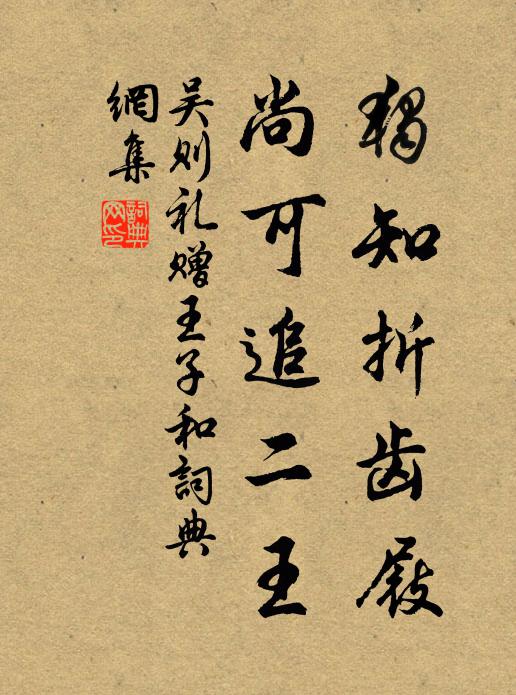 獨知折齒屐
尚可追二王
吴则礼赠王子和詞典
網集
詞典
网印